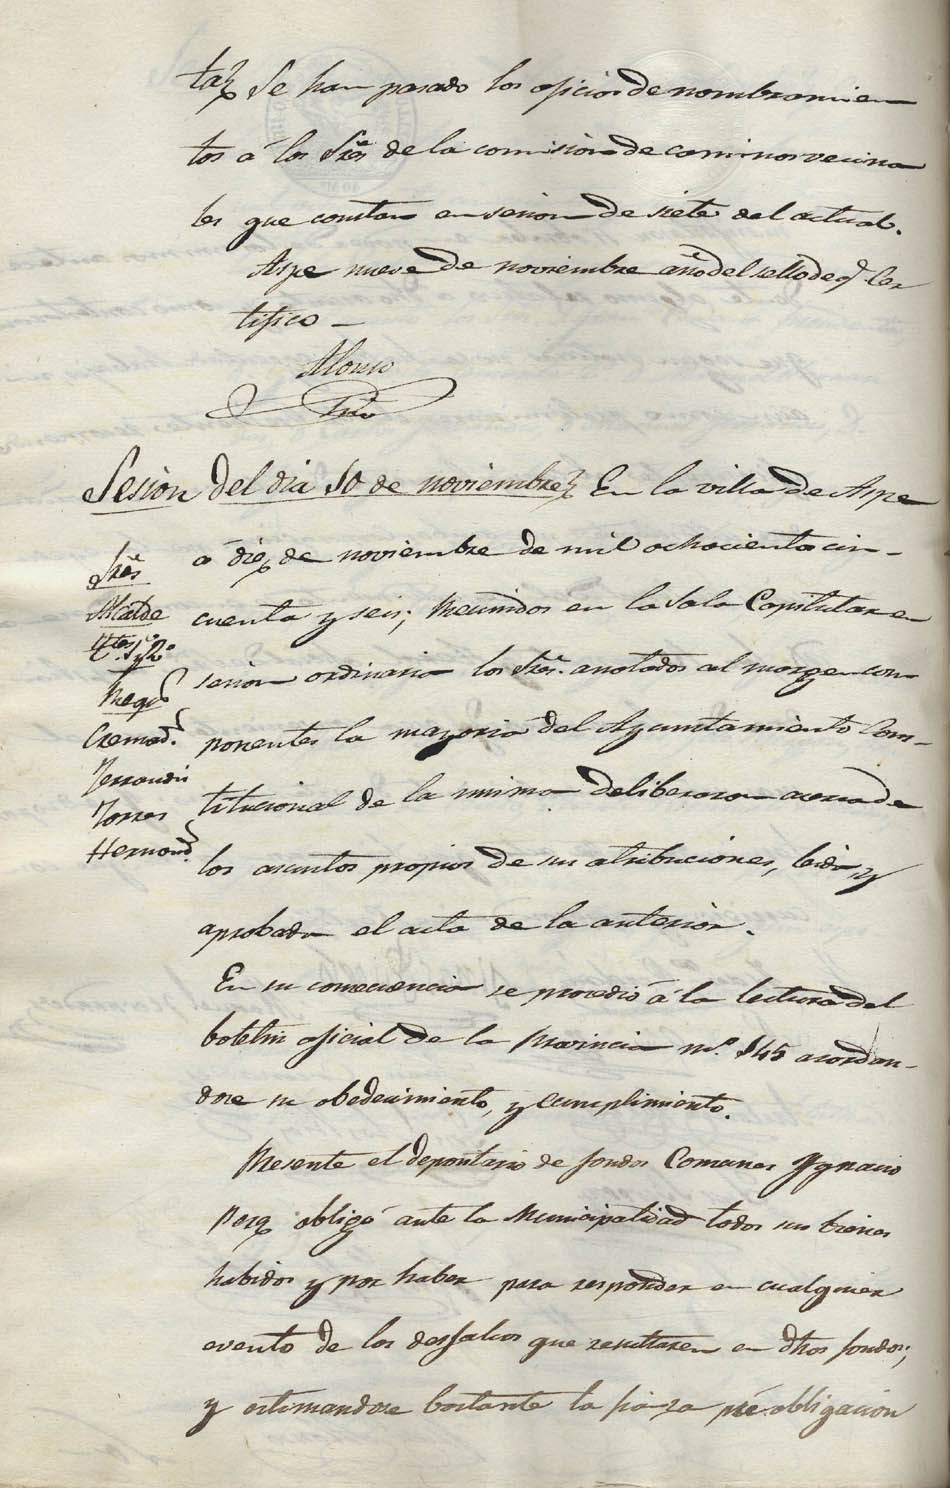 taz. Se han pasado los oficios de nombramien
tos á los Sres de la comision de caminos vecina
les que constan en sesion de siete del actual.
Aspe nueve de noviembre año del sello de q. Cer
tifico —
Alonso
Sesion del dia 10 de noviembre. En la villa de Aspe
á diez de noviembre de mil ochocientos cin-
cuenta y seis; Reunidos en la Sala Capitular en
sesion ordinaria los Sres. anotados al margen com
ponentes la mayoria del Ayuntamiento Cons-
titucional de la misma deliberaron acerca de
los asuntos propios de sus atribuciones, leida, y
aprobada el acta de la anterior.
Sres
Alcalde
Ttes 1º y 2º
Regs
Cremads.
Torres
Hernand.
En su consecuencia se procedió á la lectura del
boletin oficial de la Provincia nº. 145 acordan-
dose su obedecimiento, y cumplimiento.
Presente el depositario de fondos Comunes Ygnacio
obligó ante la Municipalidad todos sus bienes
habidos y por haber para responder en cualquier
evento de los desfalcos que resultaren en dhos fondos;
y estimandose bastante la fianza pré. obligacion